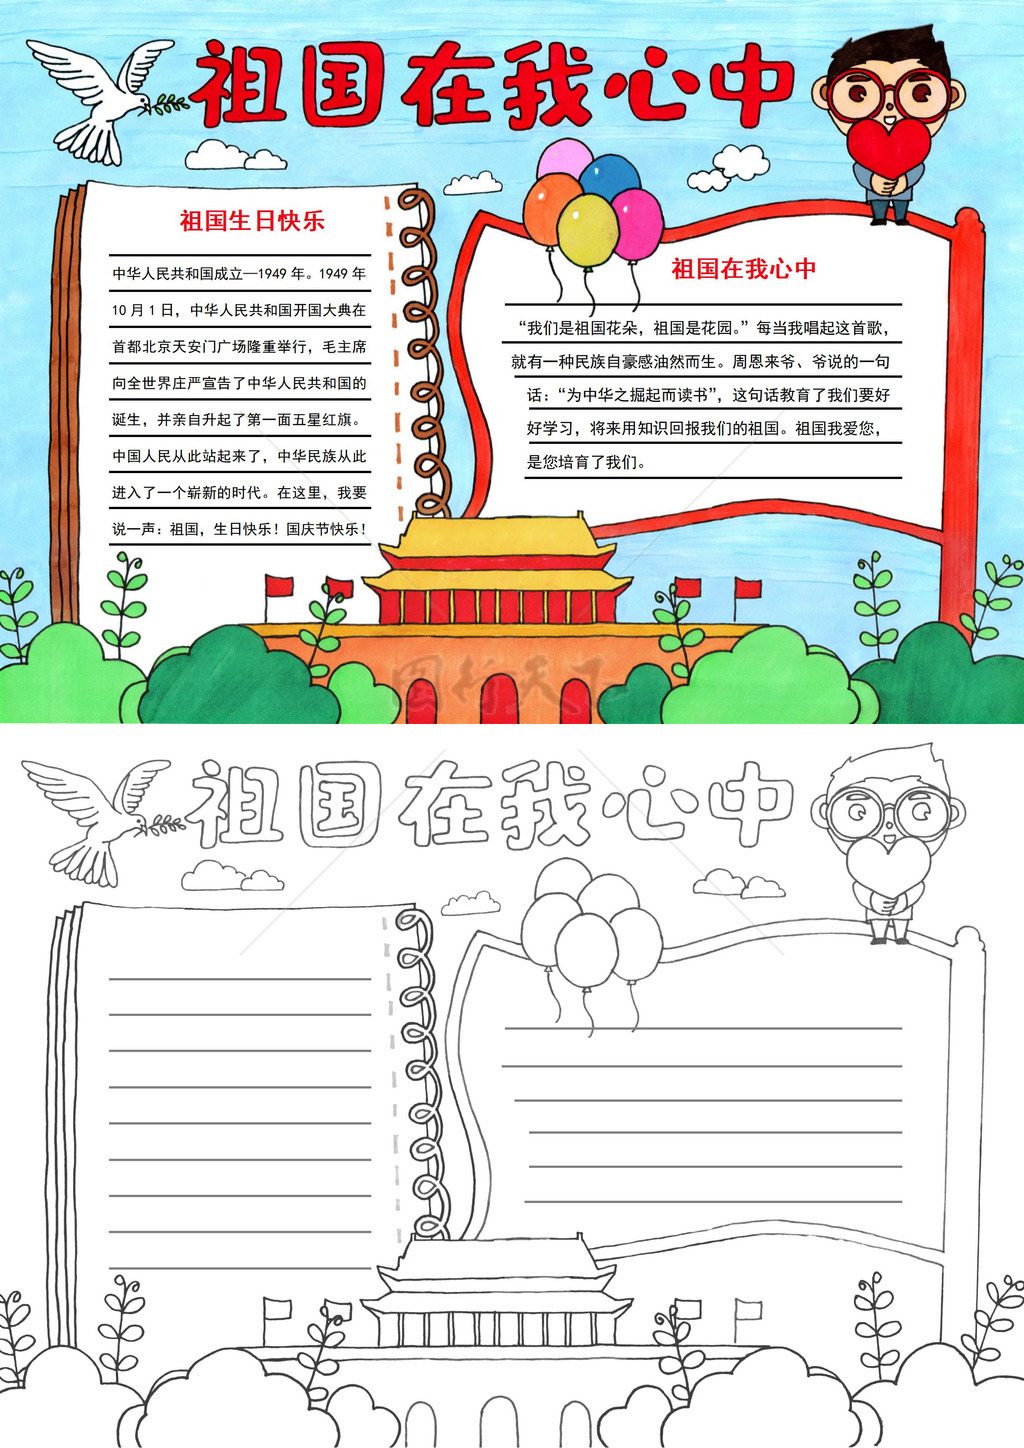 祖国在我心中
祖国生日快乐
中华人民共和国成立—1949 年。1949 年
10 月 1 日，中华人民共和国开国大典在
首都北京天安门广场隆重举行，毛主席
向全世界庄严宣告了中华人民共和国的
诞生，并亲自升起了第一面五星红旗。
中国人民从此站起来了，中华民族从此
进入了一个崭新的时代。在这里，我要
说一声：祖国，生日快乐！国庆节快乐！
祖国在我心中
“我们是祖国花朵，祖国是花园。”每当我唱起这首歌，
就有一种民族自豪感油然而生。周恩来爷、爷说的一句
话：“为中华之掘起而读书”，这句话教育了我们要好
好学习，将来用知识回报我们的祖国。祖国我爱您，
是您培育了我们。
图行天下
祖国在我心中